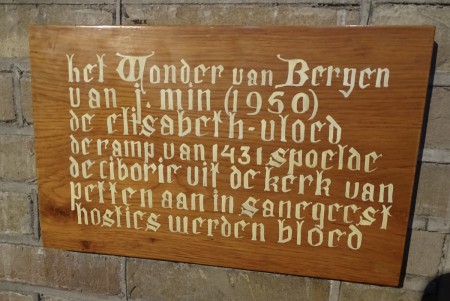 het Wonder van Bergen
van j. min (1950)
de elisabeth-vloed
de ramp van 1431 spoelde
de ciborie uit de kerk van
petten aan in sanegeest
hosties werden bloed